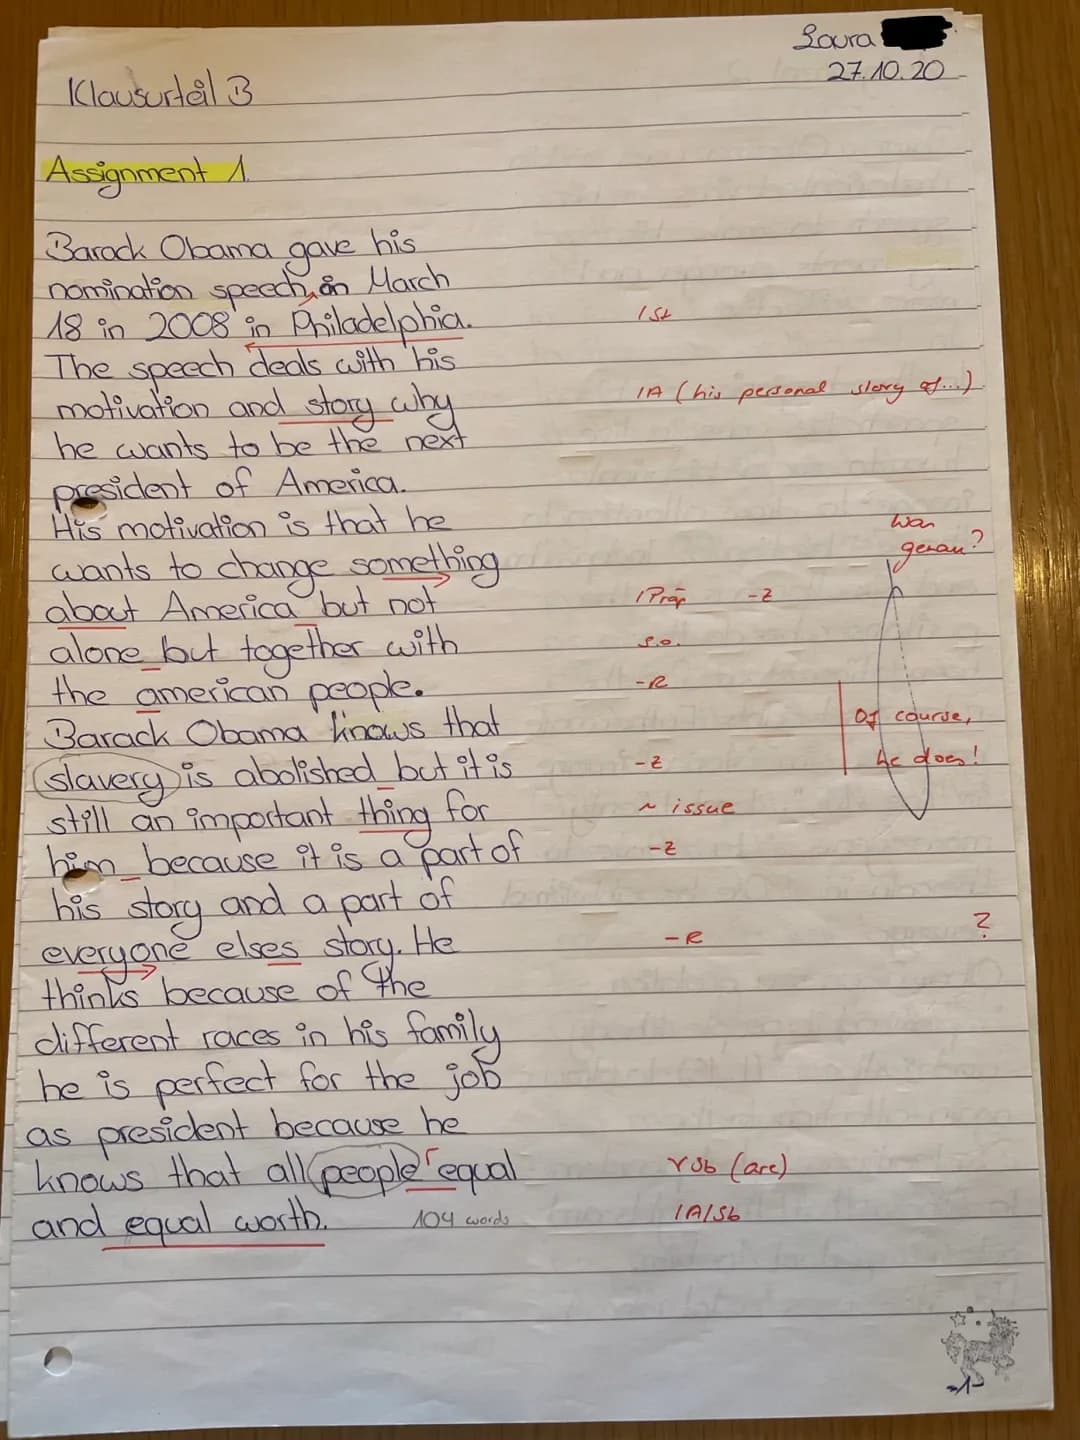 Laura
27.10.20
Klausurteil B
Assignment 1.
Barack Obama gave his
nomination speech, on March
18 in 2008 in Philadelphia.
/St
The speech deals with his
motivation and story why
/A (his personal story of...)
he wants to be the next
president of America.
His motivation is that he
was
genau?
wants to change something
about America but not
/Präp -Z
alone but together with
s.o.
the american people.
-R
Barack Obama knows that
Of course,
slavery is abolished but it is
-Z
he does!
still an important thing for
~ issue
him because it is a part of
-Z
his story and a part of
everyone elses story. He
-R
?
thinks because of the
different races in his family
he is perfect for the job
as president because he
knows that all people equal
γSb (are)
and equal worth.
104 words
/A/Sb
-1-